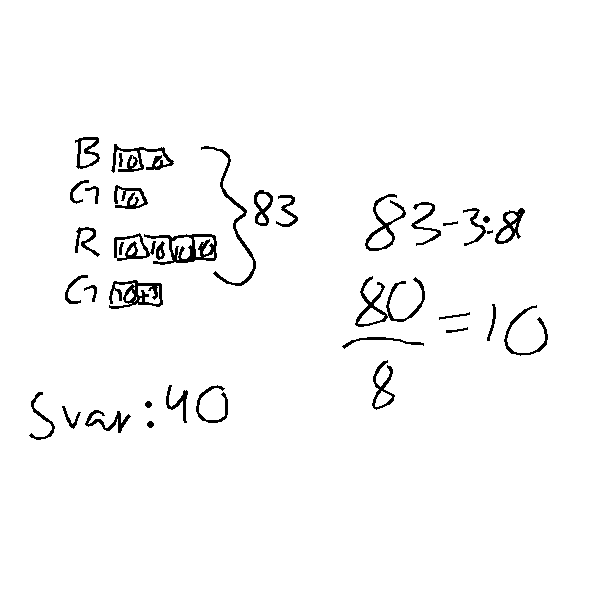 B 10 10
G 10
R 10 10 10 10
G 10 +3
83
83-3:8
80
8
=10
Svar: 40